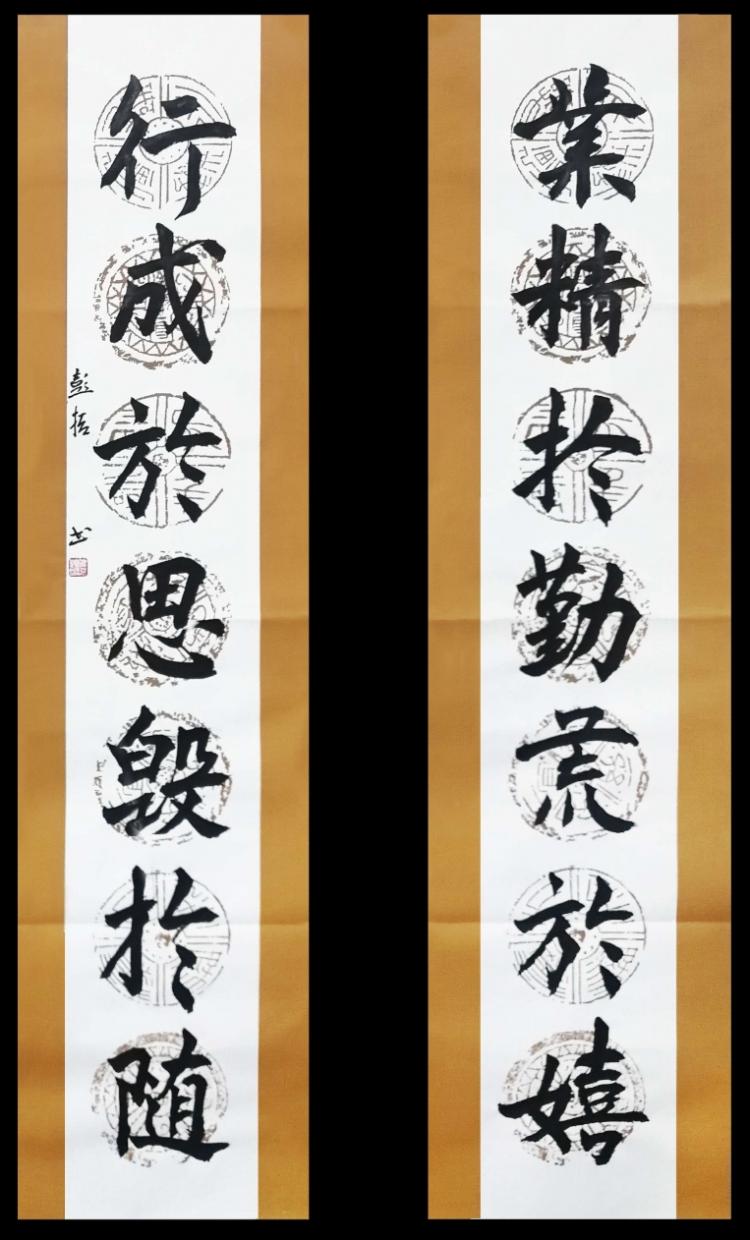 業精於勤荒於嬉
行成於思毀於随
彭括 书